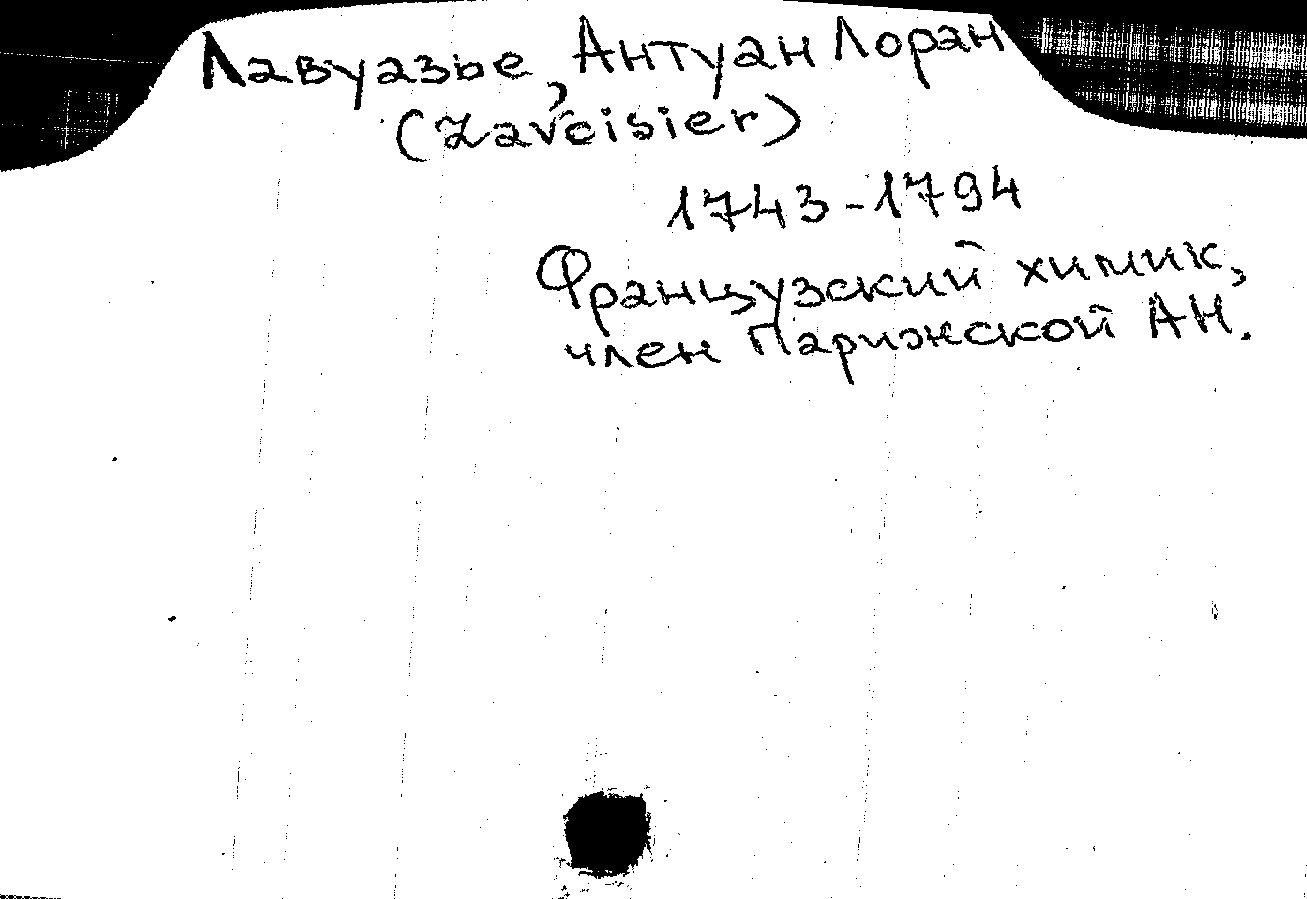 Лавуазье, Антуан Лоран
(Lavoisier)
1743-1794
Французский химик,
член Парижской АН.